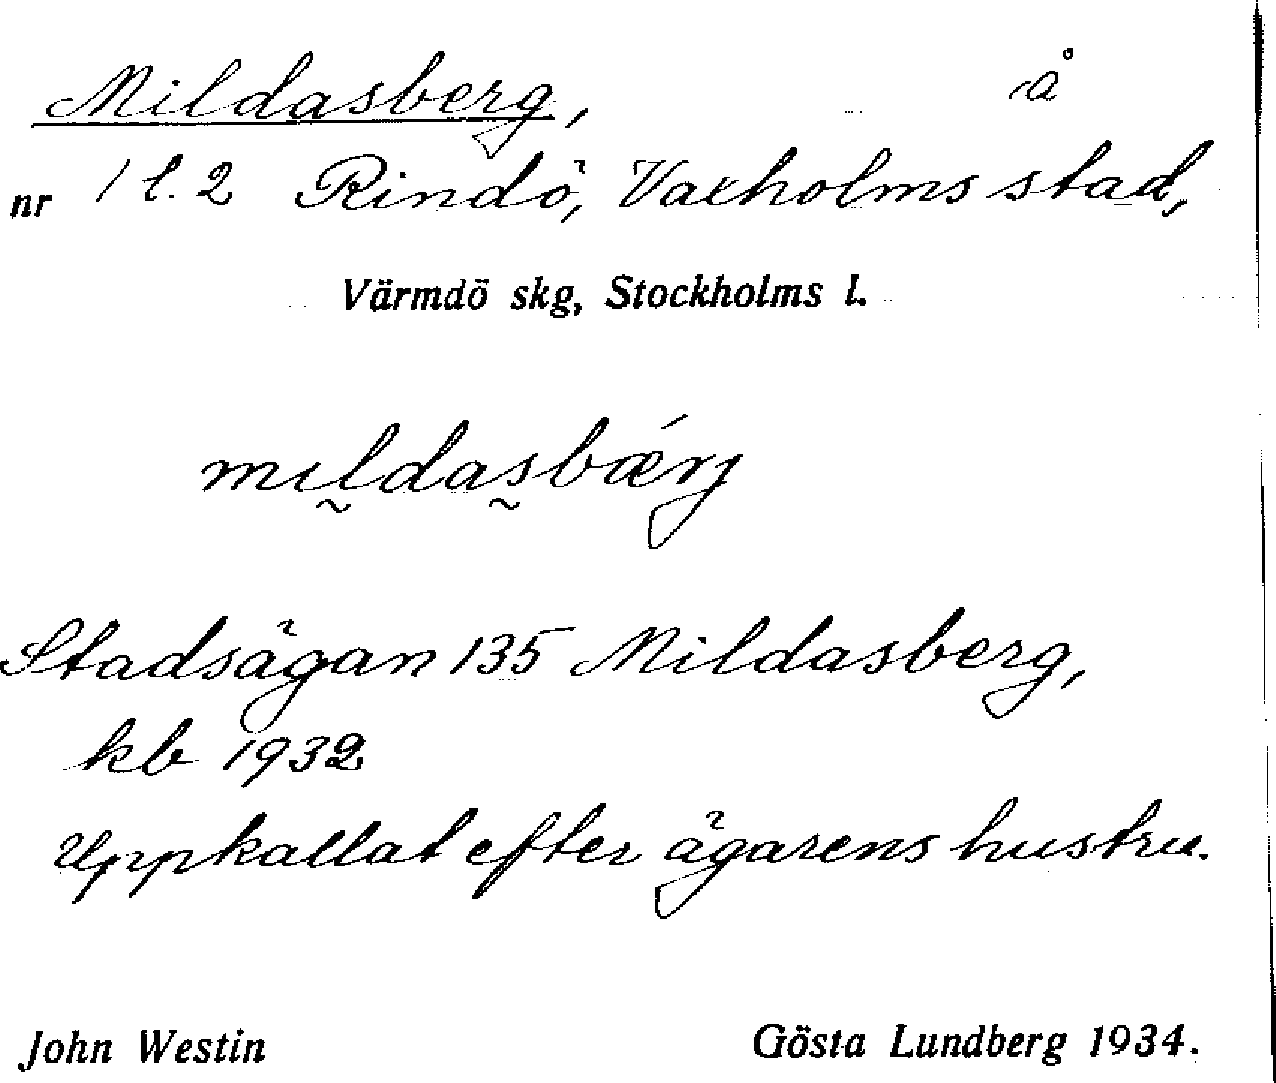 Mildasberg, å
nr 1 l. 2 Rindö, Vaxholms stad,
Värmdö skg, Stockholms l.
mıl̰das̰bǽrj
Stadsägan 135 Mildasberg,
kb 1932
Uppkallat efter ägarens hustru.
John Westin Gösta Lundberg 1934.